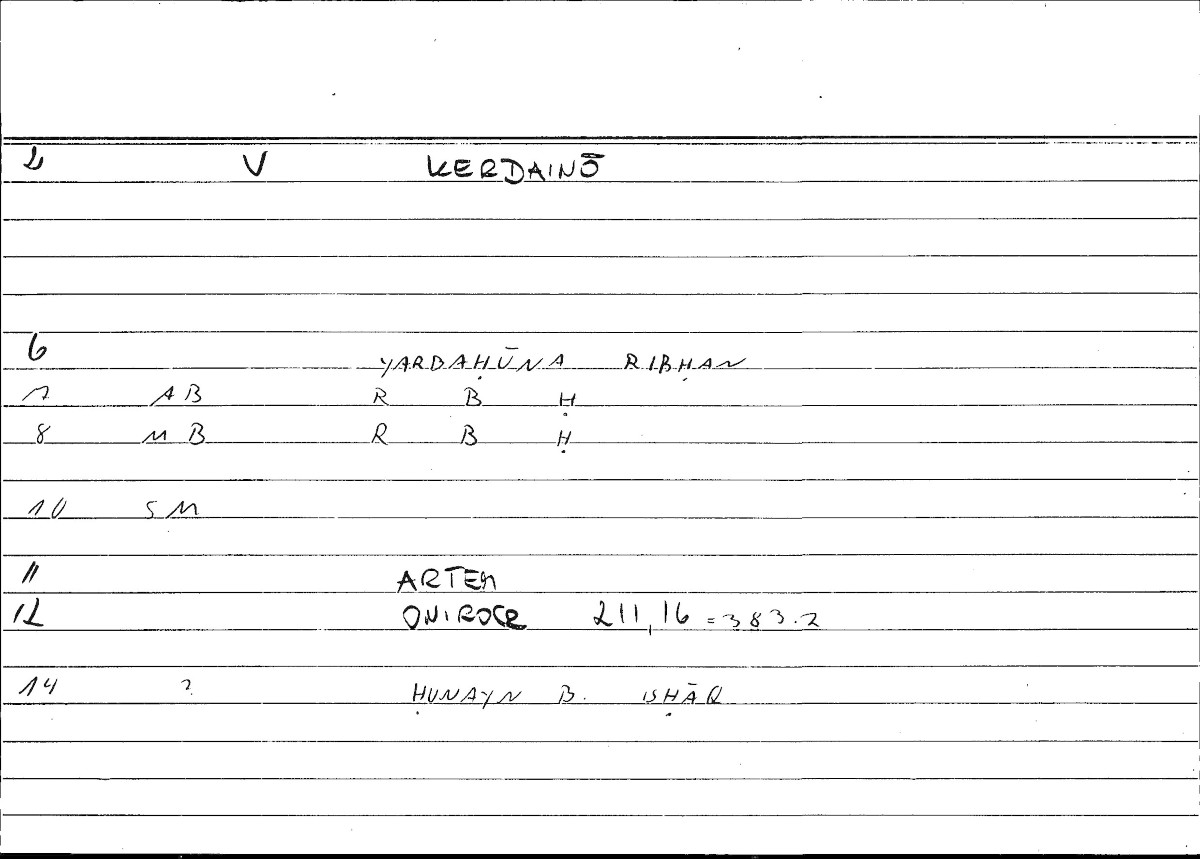 2 V KERDAINŌ
6 YARBAḤŪNA RIBḤAN
7 AB R B Ḥ
8 MB R B Ḥ
10 SM
11 ARTEM
12 ONIROCR 211,16 = 383.2
14 ? ḤUNAYN B. ISḤĀQ